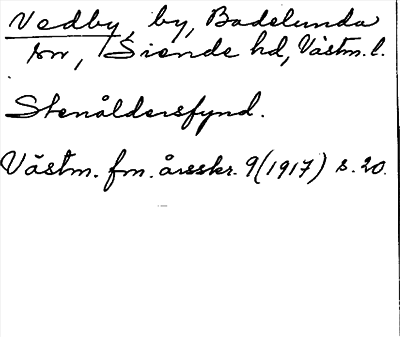 Vedby, by, Badelunda
sn, Siende hd, Västm. l.
Stenåldersfynd.
Västm. fm. årsskr. 9(1917) s. 20.